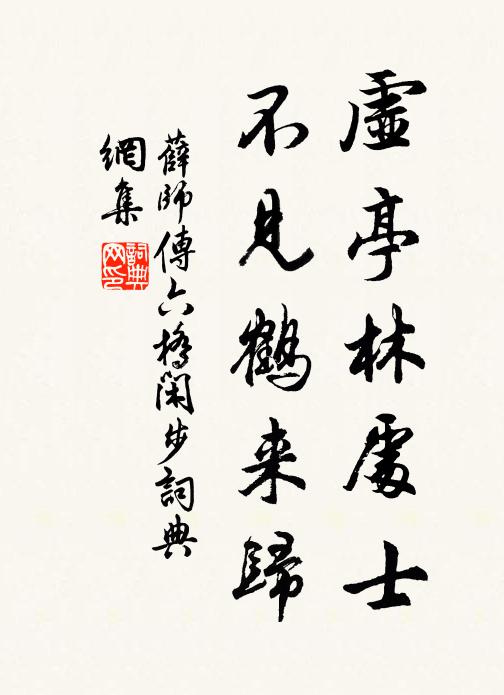 虛亭林處士
不見鶴来歸
薛師傳六橋閑步詞典
網集
詞典網印